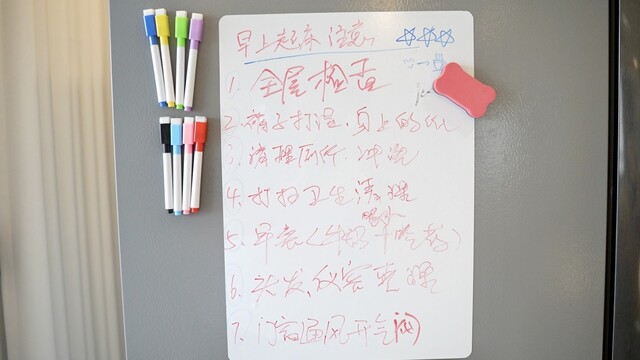 早上起床注意
1. 全屋检查
2. 打湿,身上的
3. 清理厕所.冲洗
4. 打扫卫生清理
5. 早餐(牛奶+吃药)
6. 头发,仪容整理
7. 门窗通风开气